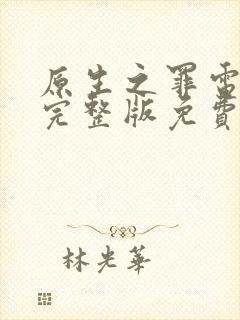 原生之罪雷
完整版免費
林光華